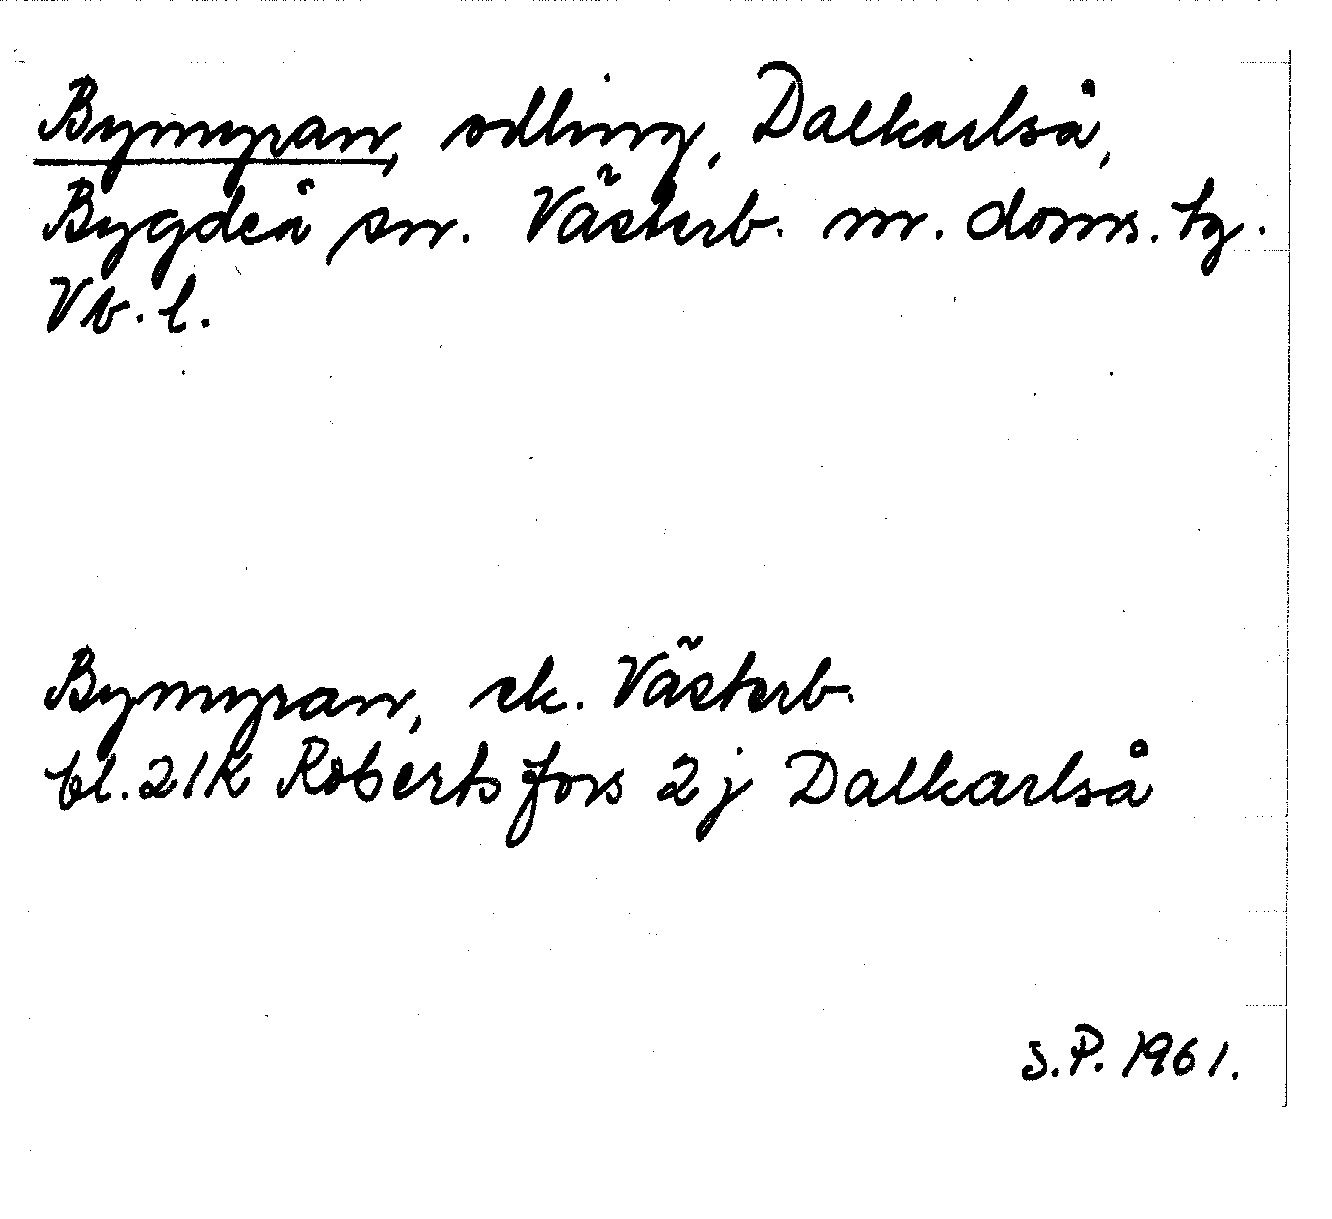 Bymyran, odling, Dalkarlså,
Bygdeå sn. Västerb. n. doms. tg.
Vb. l.
Bymyran, ek. Västerb.
bl. 21K Robertsfors 2j Dalkarlså
S.P. 1961.